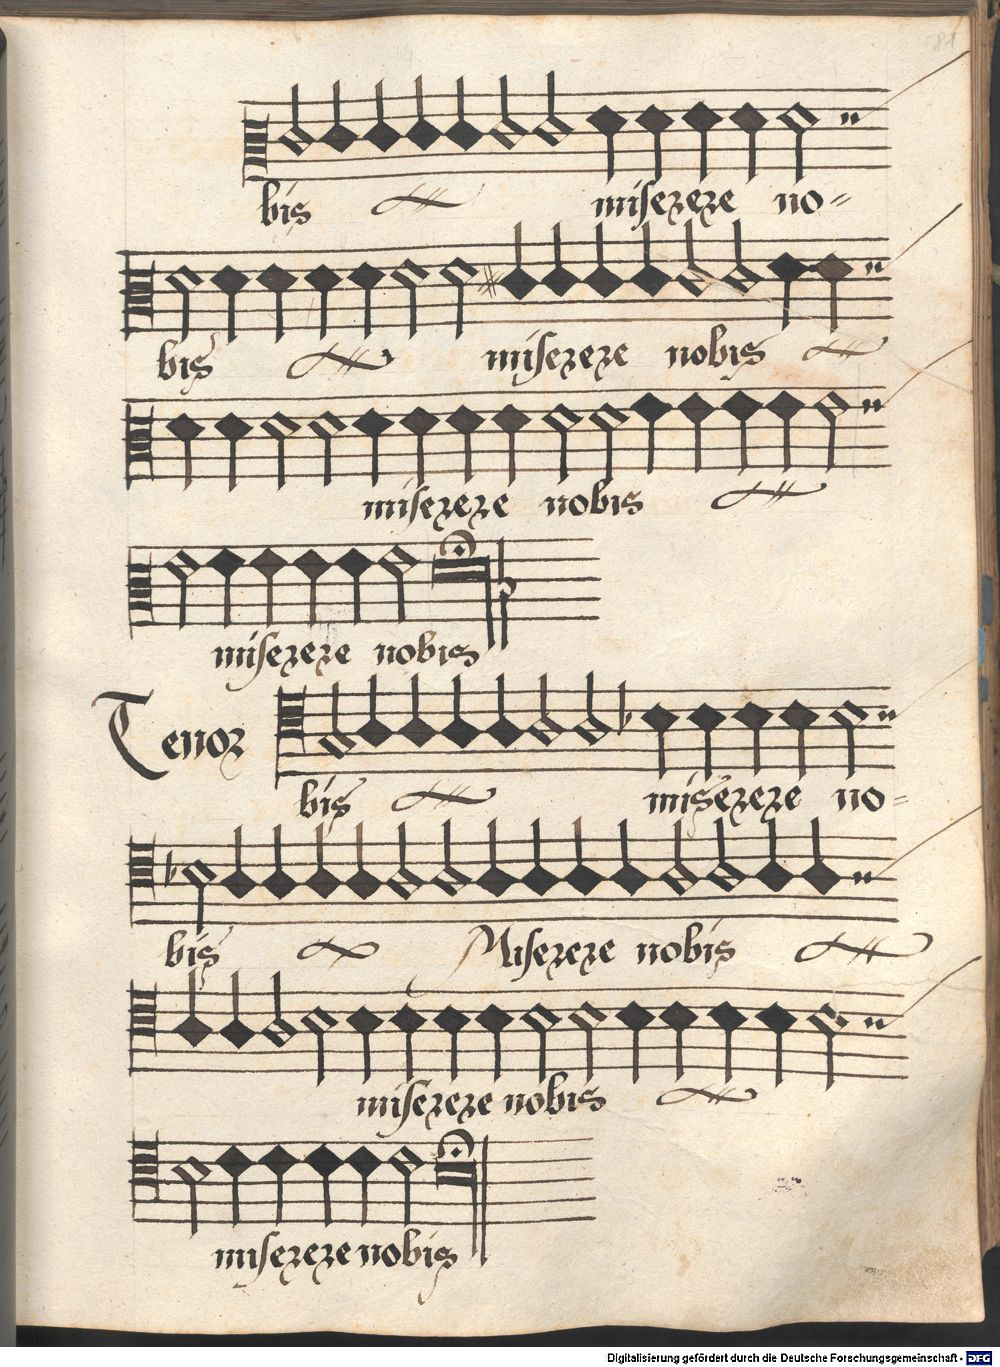 81
bis miserere no=
bis miserere nobis
miserere nobis
miserere nobis
Tenor
bis miserere no=
bis Miserere nobis
miserere nobis
miserere nobis
Digitalisierung gefördert durch die Deutsche Forschungsgemeinschaft - DFG